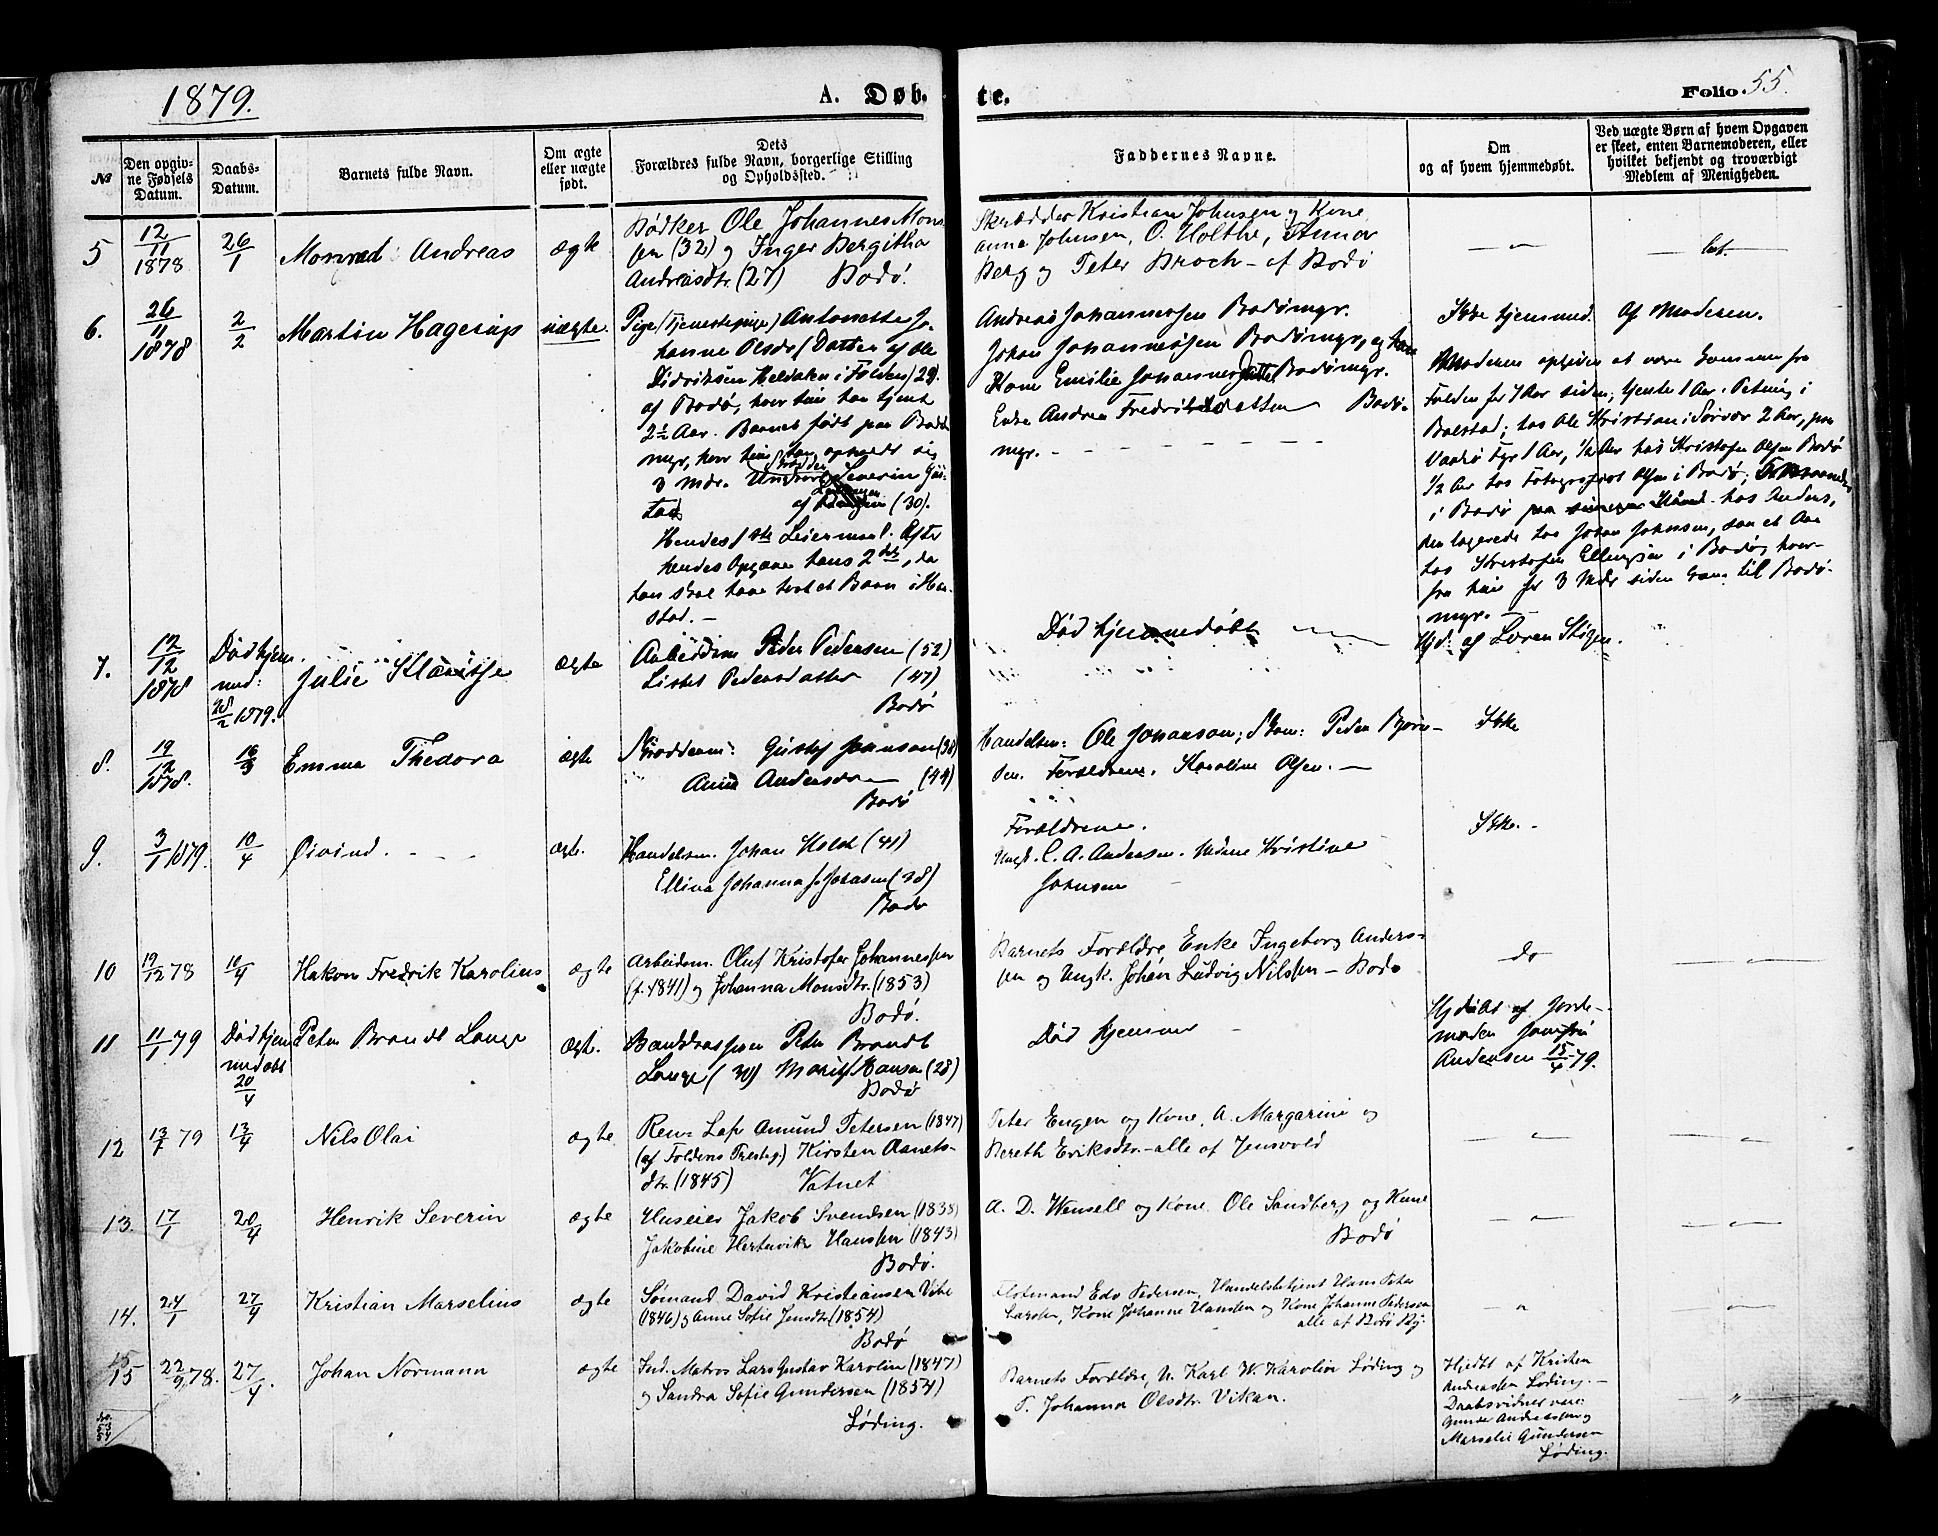 1879.
A. Døb- te.
Folio 55.
№
Den opgiv-
ne Fødsels
Datum.
Daabs-
Datum.
Barnets fulde Navn.
Om ægte
eller uægte
født.
Dets
Forældres fulde Navn, borgerlige Stilling
og Opholdssted.
Faddernes Navne.
Om
og af hvem hjemmedøbt.
Ved uægte Børn af hvem Opgaven
er skeet, enten Barnemoderen, eller
hvilket bekjendt og troværdigt
Medlem af Menigheden.
5
12/11 1878
26/1
Monrad Andreas
ægte
Bødker Ole Johannes Mons
sen (32) og Inger Bergitha
Andreasdtr. (27) Bodø.
Skrædder Kristian Johnsen og Kone
Anna Johnsen, O. Holthe, Anna
Berg og Peter Broch - af Bodø
6.
26/11 1878
2/2
Martin Hagerup
uægte.
Pige (Tjenestepige) Antonette Jo-
hanne Olsdr (Datter af Ole
Didriksen Heldalen i Folden) 29.
af Bodø, hvor hun har tjent
2½ Aar. Barnet født paa Bodø
myr, hvor hun har opholdt sig
3 Mdr. Severin
af (30).
Hendes 1ste Leiermaal. Efter
hendes Opgave hans 2det, da
han skal have havt et Barn i Har-
stad. -
Andreas Johannessen Bodømyr.
Johan Johannessen Bodømyr, og hans
Kone Emilie Johannesdatter Bodømyr.
Enke Andrea Fredriksdatter Bodø-
myr.
Ikke hjemmed.
Af Moderen.
Moderen opgiver at være kommen fra
Folden for 7 Aar siden; tjente 1 Aar
Bolstad; hos Ole Kristian i Sørvær 2 Aar, paa
Vaarø Fyr 1 Aar, ½ Aar hos Kristofer Olsen Bodø
½ Aar hos Fotograf Olsen i Bodø;
i Bodø hos Anders,
den lagerede hos Johan Johnsen, saa et Aar
hos Kristofer Ellingsen i Bodø, hvor-
fra hun for 3 Mdr siden kom til Bodø-
myr. -
7.
12/12 1878
Død hjem
med:
28/2 1879.
Julie
ægte
Arbeidsm Peder Pedersen (52)
Lisbet Pedersdatter (47)
Bodø
Død hjemmedøbt
Hjd: af Loren
8.
19/12 1878.
16/3
Emma Thedora
ægte
Gustaf Jonson (38)
Anna Andersdr (44)
Bodø
Handelsm: Ole Johanson; Skom: Peder Bjørn-
sen. Forældrene. Karoline Olsen. -
Ikke
9.
3/1 1879.
10/4
Øivind.
ægte.
Handelsm. Johan Koch (41)
Ellina Johanna (28)
Bodø
Forældrene.
Ungk. C. A. Andersen. Madame Kristine
Johnsen
Ikke. -
10
19/12 78
10/4
Hakon Fredrik Karolius
ægte
Arbeidsm. Oluf Kristofer Johannessen
(f. 1841) og Johanna Monsdtr. (1853)
Bodø.
Barnets Forældre, Enke Ingeborg Anders-
sen og Ungk. Johan Ludvig Nilssen - Bodø
do
11
11/1 79
Død hjem
medøbt
20/4
Peter Brandt Lange
ægte.
Peter Brandt
Lange (30) Marie Hansen (28)
Bodø
Død hjemm
Hjdøbt af Jorde-
moder Jomfru
Andersen 15/4 79.
12
13/1 79
13/4
Nils Olai
ægte
Rens Lap Amund Petersen (1847)
(af Foldens Prestgj) Kirsten Aanets-
dtr. (1845) Vatnet
Peter Engen og Kone, A. Margarine og
Bereth Eriksdtr. - alle af Jensvold
13.
17/1
20/4
Henrik Severin
ægte
Huseier Jakob Svendsen (1838)
Jakobine Hertervik Hanssen (1843)
Bodø.
A. D. Wensell og Kone. Ole Sandberg og Kone
Bodø
14.
24/1
27/4
Kristian Marselius
ægte
Sømand David Kristiansen Vibe
(1846) og Anne Sofie Jensdtr (1854)
Bodø
Flotmand Edv Pedersen, Handelsbetjent Hans Peter
Larsen, Kone Johanne Hansen og Kone Johanne Pedersen
alle af Bodø By.
15
22/9 78.
27/4.
Johan Normann
ægte
Ind. Matros Lars Gustav Karolin (1847)
og Sandra Sofie Gundersen (1854)
Løding.
Barnets Forældre, U. Karl W. Karolin Løding og
P. Johanna Olsdtr. Vikan.
Hjdbt af Kristen
Andreassen Løding. -
Daabsvidner vare:
Gunder Andreassen og
Marselie Gundersen
Løding.